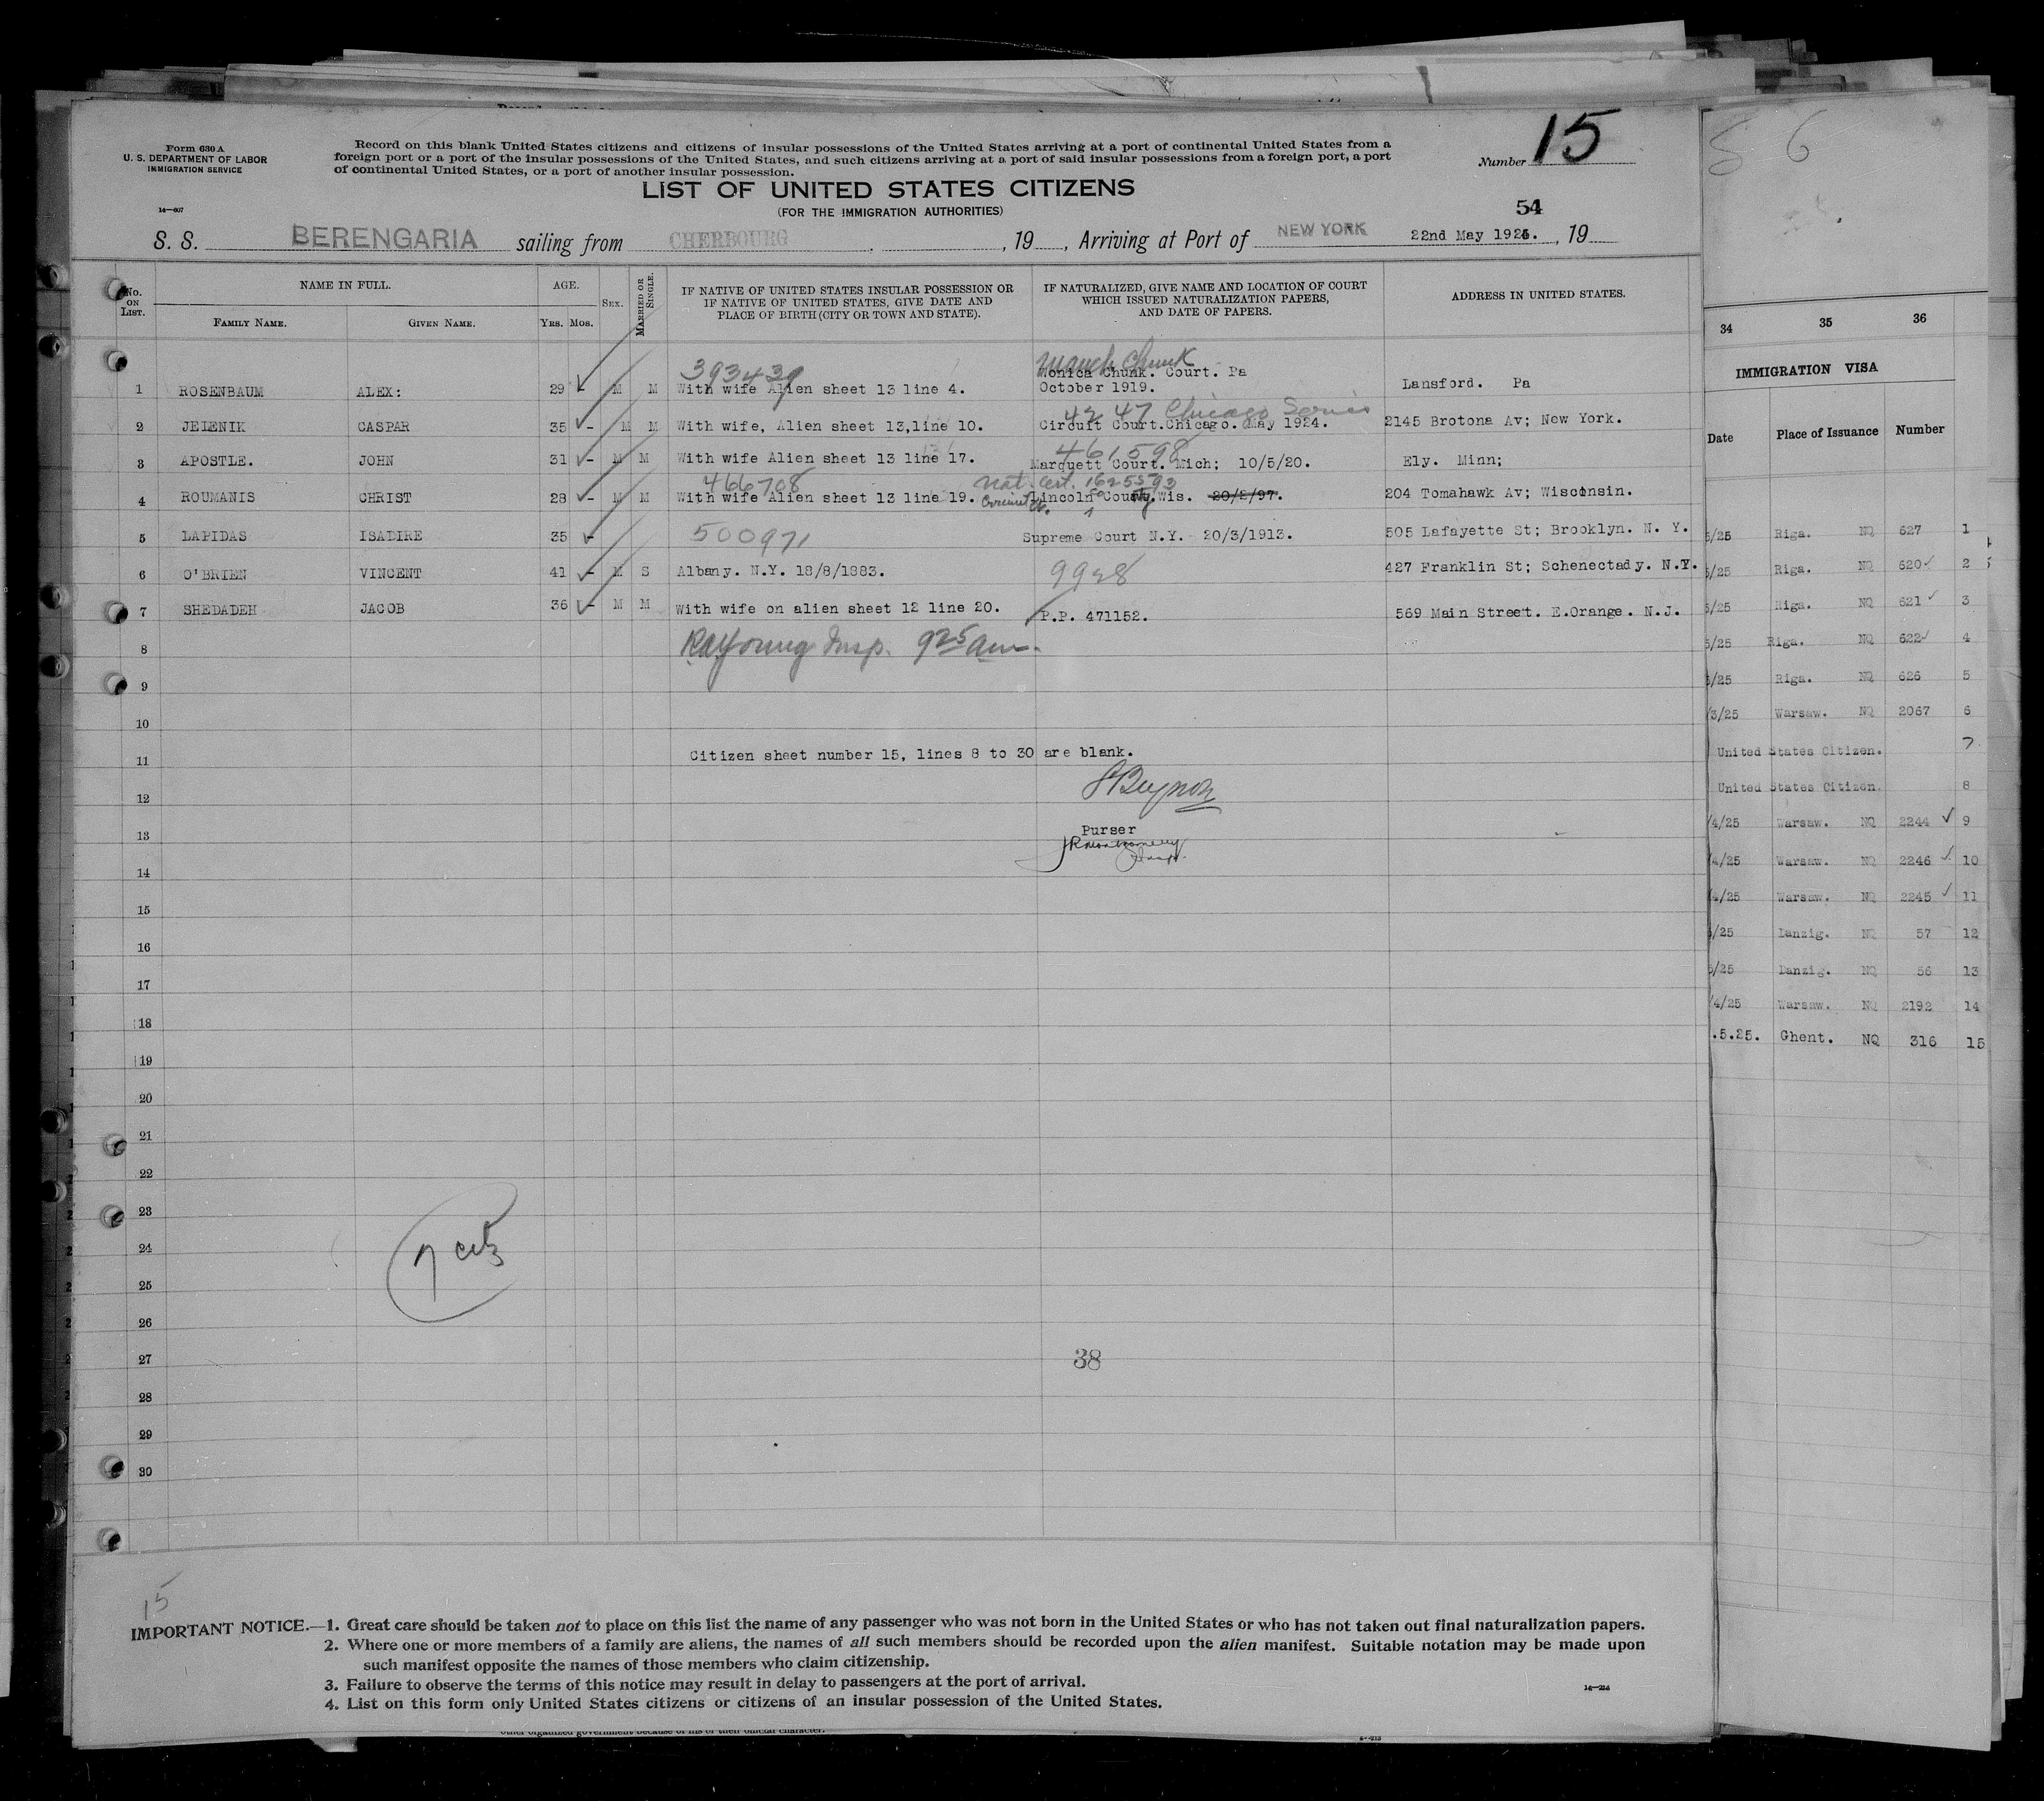 Form 630 A
U. S. DEPARTMENT OF LABOR
IMMIGRATION SERVICE
14—607
Record on this blank United States citizens and citizens of insular possessions of the United States arriving at a port of continental United States from a
foreign port or a port of the insular possessions of the United States, and such citizens arriving at a port of said insular possessions from a foreign port, a port
of continental United States, or a port of another insular possession.
Number 15
LIST OF UNITED STATES CITIZENS
(FOR THE IMMIGRATION AUTHORITIES)
54
S. S. BERENGARIA sailing from CHERBOURG , 19 , Arriving at Port of NEW YORK 22nd May 1925. , 19
No. ON LIST. NAME IN FULL. FAMILY NAME. GIVEN NAME. AGE. YRS. MOS. SEX. MARRIED OR SINGLE. IF NATIVE OF UNITED STATES INSULAR POSSESSION OR IF NATIVE OF UNITED STATES, GIVE DATE AND PLACE OF BIRTH (CITY OR TOWN AND STATE). IF NATURALIZED, GIVE NAME AND LOCATION OF COURT WHICH ISSUED NATURALIZATION PAPERS, AND DATE OF PAPERS. ADDRESS IN UNITED STATES.
393439 Mauch Chunk
1 ROSENBAUM ALEX: 29 - M M With wife Alien sheet 13 line 4. Monica Chunk. Court. Pa October 1919. Lansford. Pa
42 47 Chicago Series
2 JELENIK CASPAR 35 - M M With wife, Alien sheet 13,line 10. Circuit Court.Chicago. May 1924. 2145 Brotona Av; New York.
461598
3 APOSTLE. JOHN 31 - M M With wife Alien sheet 13 line 17. Marquett Court. Mich; 10/5/20. Ely. Minn;
466708 Nat. Cert. 1625593
4 ROUMANIS CHRIST 28 - M M With wife Alien sheet 13 line 19. Circuit Ct. Lincoln County.Wis. 20/2/97. 204 Tomahawk Av; Wisconsin.
5 LAPIDAS ISADIRE 35 - 500971 Supreme Court N.Y. 20/3/1913. 505 Lafayette St; Brooklyn. N. Y.
6 O'BRIEN VINCENT 41 - M S Albany. N.Y. 18/8/1883. 9928 427 Franklin St; Schenectady. N.Y.
7 SHEDADEH JACOB 36 - M M With wife on alien sheet 12 line 20. P.P. 471152. 569 Main Street. E.Orange. N.J.
8 RAYoung Insp. 9 25 am.
9
10
11 Citizen sheet number 15, lines 8 to 30 are blank.
12
13 Purser
14
15
16
17
18
19
20
21
22
23
24 7 cits
25
26
27 38
28
29
30
15
IMPORTANT NOTICE.—1. Great care should be taken not to place on this list the name of any passenger who was not born in the United States or who has not taken out final naturalization papers.
2. Where one or more members of a family are aliens, the names of all such members should be recorded upon the alien manifest. Suitable notation may be made upon
such manifest opposite the names of those members who claim citizenship.
3. Failure to observe the terms of this notice may result in delay to passengers at the port of arrival.
4. List on this form only United States citizens or citizens of an insular possession of the United States.
other organized government because of his or their official character.
56
34 35 36
IMMIGRATION VISA
Date Place of Issuance Number
5/25 Riga. NQ 627 1
5/25 Riga. NQ 620 2
5/25 Riga. NQ 621 3
5/25 Riga. NQ 622 4
5/25 Riga. NQ 626 5
/3/25 Warsaw. NQ 2067 6
United States Citizen. 7
United States Citizen. 8
/4/25 Warsaw. NQ 2244 9
/4/25 Warsaw. NQ 2246 10
/4/25 Warsaw. NQ 2245 11
/25 Danzig. NQ 57 12
5/25 Danzig. NQ 56 13
/4/25 Warsaw. NQ 2192 14
.5.25. Ghent. NQ 316 15